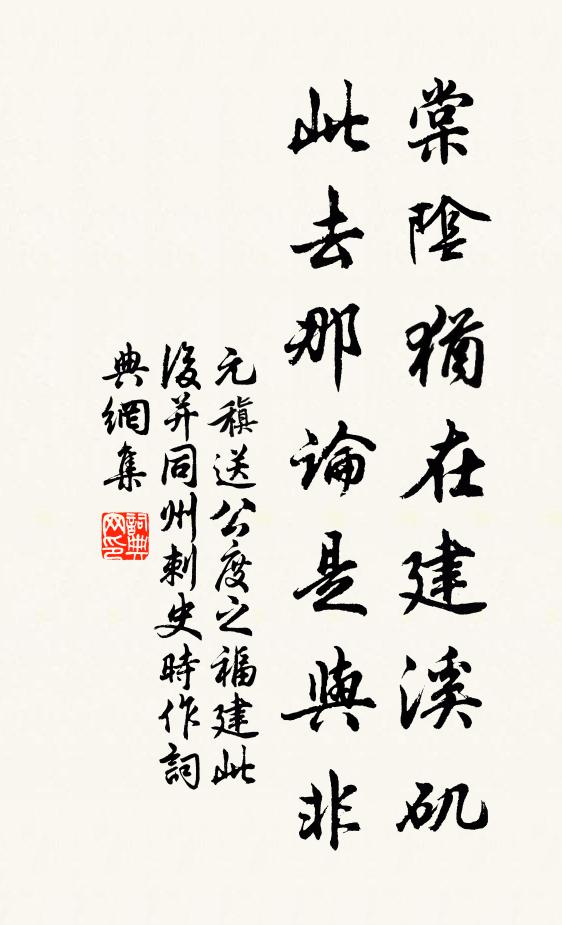 棠陰猶在建溪矶
此去那論是與非
元稹送公度之福建此
後并同州刺史時作詞
典網集
詞典网印